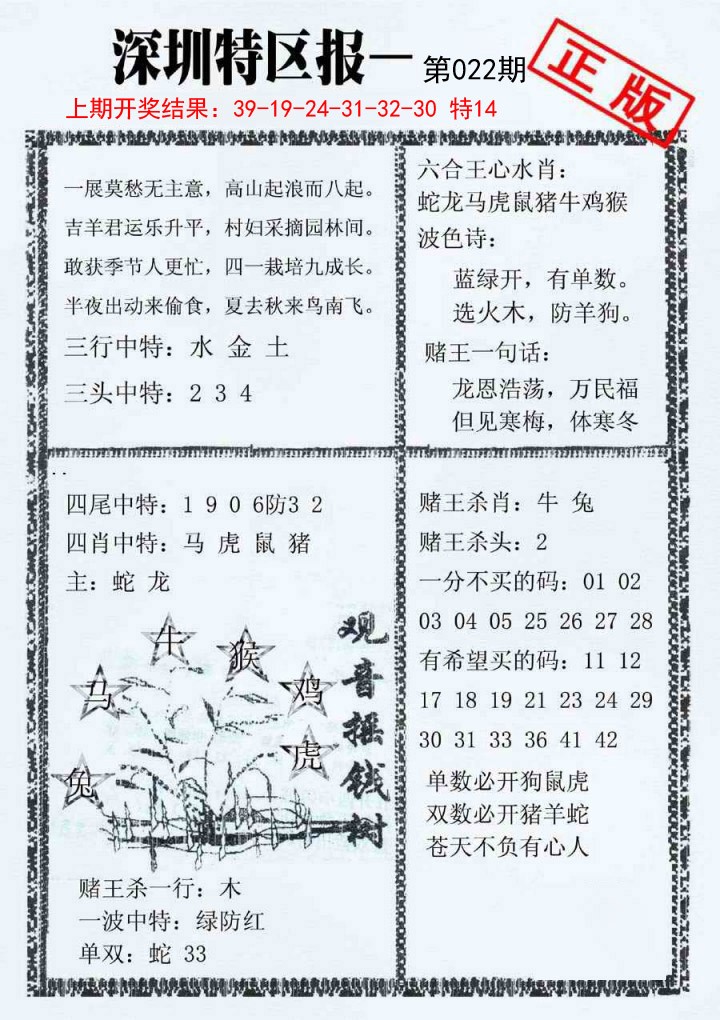 深圳特区报一 第022期
正版
上期开奖结果：39-19-24-31-32-30 特14
一展莫愁无主意，高山起浪而八起。
吉羊君运乐升平，村妇采摘园林间。
敢获季节人更忙，四一栽培九成长。
半夜出动来偷食，夏去秋来鸟南飞。
三行中特：水 金 土
三头中特：2 3 4
六合王心水肖：
蛇龙马虎鼠猪牛鸡猴
波色诗：
蓝绿开，有单数。
选火木，防羊狗。
赌王一句话：
龙恩浩荡，万民福
但见寒梅，体寒冬
四尾中特：1 9 0 6防3 2
四肖中特：马 虎 鼠 猪
主：蛇 龙
牛
猴
马
鸡
虎
兔
观音摇钱树
赌王杀一行：木
一波中特：绿防红
单双：蛇 33
赌王杀肖：牛 兔
赌王杀头：2
一分不买的码：01 02
03 04 05 25 26 27 28
有希望买的码：11 12
17 18 19 21 23 24 29
30 31 33 36 41 42
单数必开狗鼠虎
双数必开猪羊蛇
苍天不负有心人